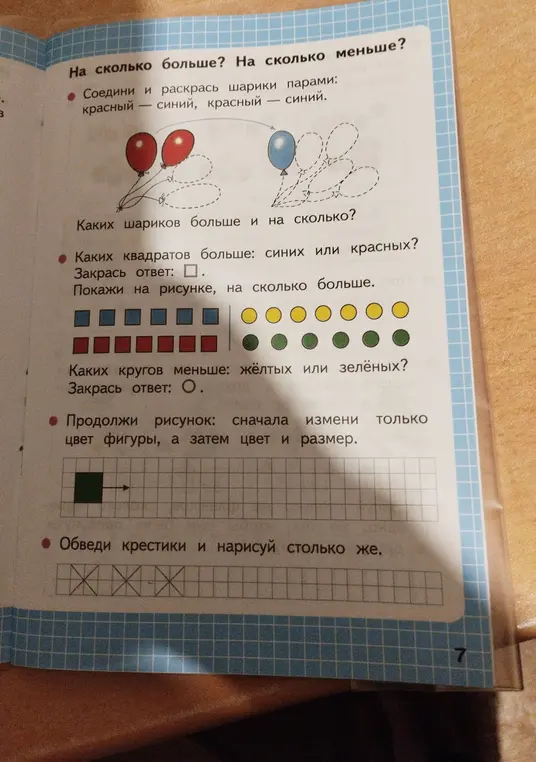 На сколько больше? На сколько меньше?
Соедини и раскрась шарики парами:
красный — синий, красный — синий.
Каких шариков больше и на сколько?
Каких квадратов больше: синих или красных?
Закрась ответ: .
Покажи на рисунке, на сколько больше.
Каких кругов меньше: жёлтых или зелёных?
Закрась ответ: .
Продолжи рисунок: сначала измени только
цвет фигуры, а затем цвет и размер.
Обведи крестики и нарисуй столько же.
7